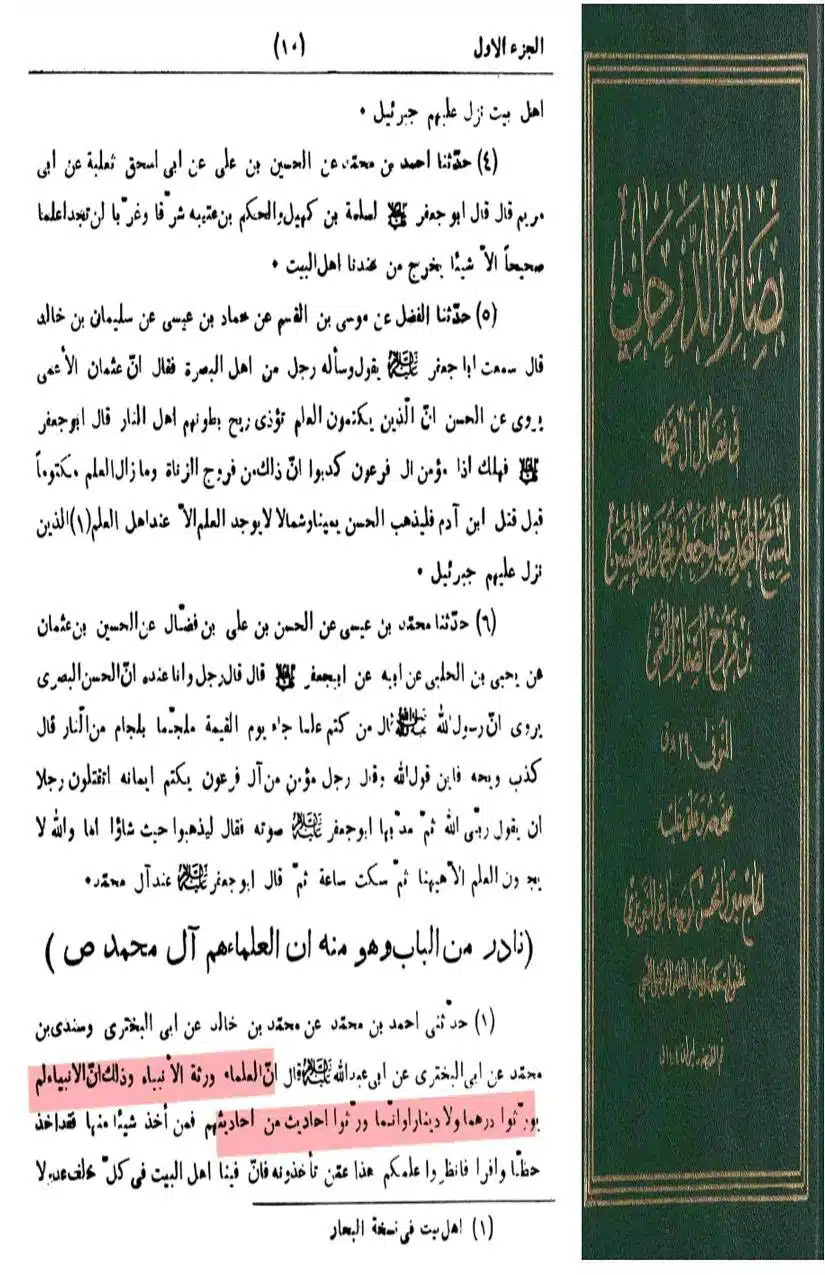 الجزء الاول (١٠)
اهل بيت نزل عليهم جبرئيل ٠
(٤) حدّثنا احمد بن محمّد عن الحسين بن على عن ابى اسحق ثعلبة عن ابى
مريم قال قال ابو جعفر لسلمة بن كهيل والحكم بن عتيبه شرّقا وغرّبا لن تجدا علما
صحيحاً الاّ شيئا يخرج من عندنا اهل البيت ٠
(٥) حدّثنا الفضل عن موسى بن القسم عن حماد بن عيسى عن سليمان بن خالد
قال سمعت ابا جعفر عليه السلام يقول وسأله رجل من اهل البصرة فقال انّ عثمان الأعمى
يروى عن الحسن انّ الّذين يكتمون العلم تؤذى ريح بطونهم اهل النار قال ابو جعفر
فهلك اذا مؤمن ال فرعون كذبوا انّ ذلك من فروج الزناة وما زال العلم مكتوماً
قبل قتل ابن آدم فليذهب الحسن يمينا وشمالا لا يوجد العلم الاّ عند اهل العلم (١) الذين
نزل عليهم جبرئيل ٠
(٦) حدّثنا محمّد بن عيسى عن الحسن بن على بن فضّال عن الحسين بن عثمان
عن يحيى بن الحلبى عن ابيه عن ابيجعفر قال قال رجل وانا عنده انّ الحسن البصرى
يروى انّ رسول الله قال من كتم علما جاء يوم القيمة ملجّما بلجام من النّار قال
كذب ويحه فاين قول الله وقال رجل مؤمن من آل فرعون يكتم ايمانه اتقتلون رجلا
ان يقول ربّى الله ثمّ مدّ بها ابو جعفر عليه السلام صوته فقال ليذهبوا حيث شاؤا اما والله لا
يجدون العلم الاّ هيهنا ثمّ سكت ساعة ثمّ قال ابو جعفر عليه السلام عند آل محمّد ٠
(نادر من الباب وهو منه ان العلماء هم آل محمد ص)
(١) حدّثنى احمد بن محمّد عن محمّد بن خالد عن ابى البخترى وسندى بن
محمّد عن ابى البخترى عن ابى عبد الله عليه السلام قال انّ العلماء ورثة الأنبياء وذلك انّ الانبياء لم
يورّثوا درهما ولا دينارا وانّما ورّثوا احاديث من احاديثهم فمن أخذ شيئا منها فقد اخذ
حظّا وافرا فانظروا علمكم هذا عمّن تأخذونه فانّ فينا اهل البيت فى كلّ خلف عدولا
(١) اهل بيت فى نسخة البحار
بصائر الدرجات
فى فضائل آل محمد
للشيخ المحدث ابو جعفر محمد بن الحسن
بن فروخ الصفار القمى
المتوفى ٢٩٠ ه ق